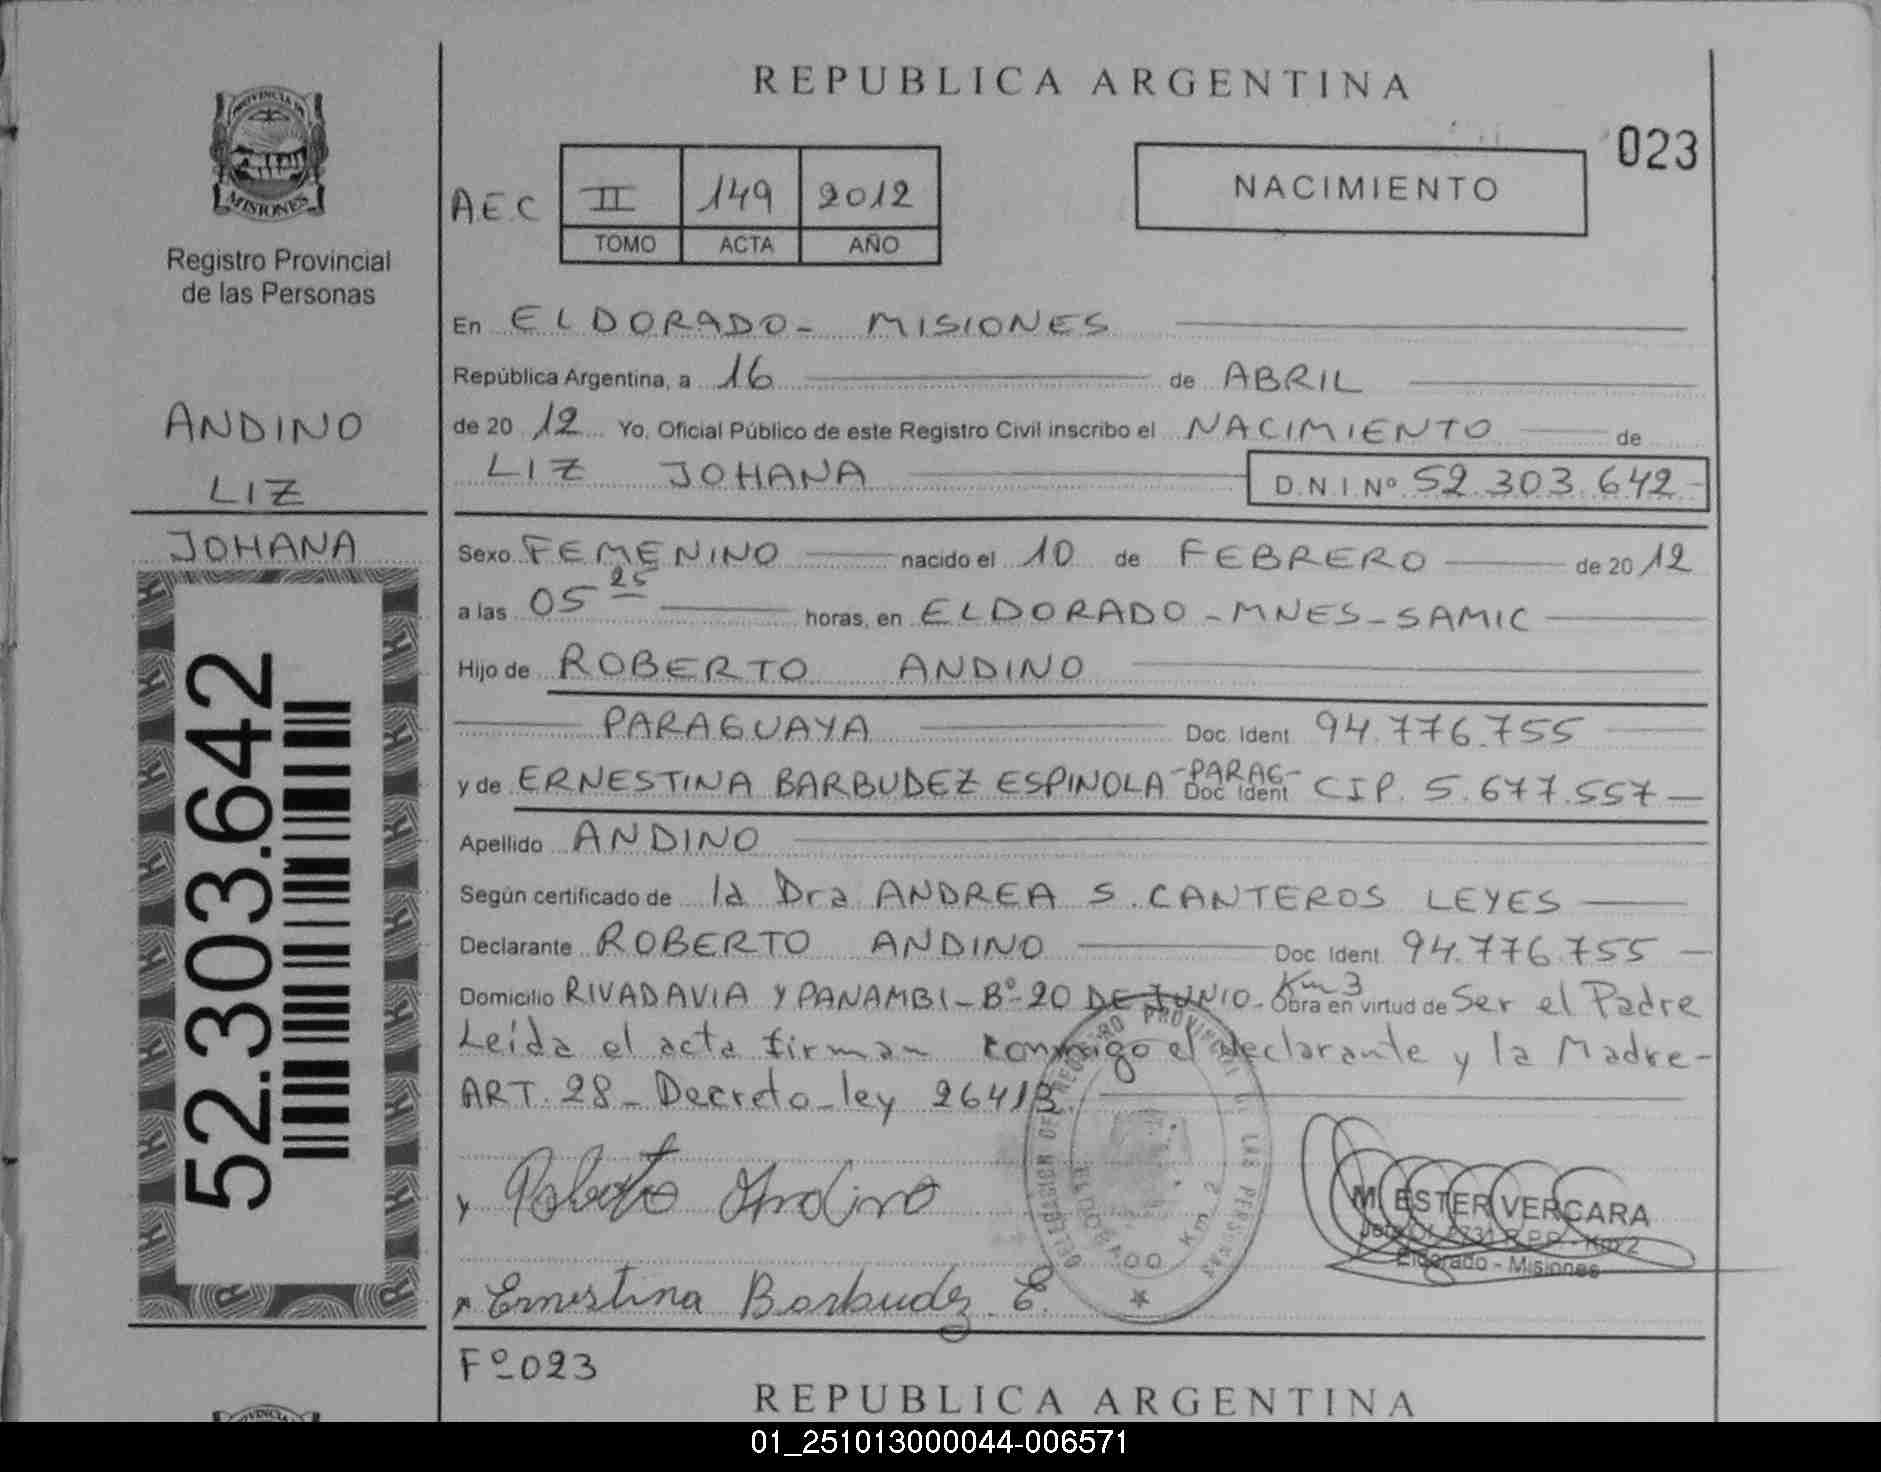 REPUBLICA ARGENTINA
023
PROVINCIA DE
MISIONES
Registro Provincial
de las Personas
AEC II 149 2012
TOMO ACTA AÑO
NACIMIENTO
ANDINO
LIZ
JOHANA
52.303.642
En ELDORADO - MISIONES
República Argentina, a 16 de ABRIL
de 20 12 Yo, Oficial Público de este Registro Civil inscribo el NACIMIENTO de
LIZ JOHANA D.N.I.Nº 52.303.642-
Sexo FEMENINO nacido el 10 de FEBRERO de 20 12
a las 05 25 horas, en ELDORADO - MNES - SAMIC
Hijo de ROBERTO ANDINO
PARAGUAYA Doc. Ident. 94.776.755
y de ERNESTINA BARBUDEZ ESPINOLA -PARAG- Doc Ident CIP. 5.677.557-
Apellido ANDINO
Según certificado de la Dra ANDREA S. CANTEROS LEYES
Declarante ROBERTO ANDINO Doc. Ident. 94.776.755 -
Domicilio RIVADAVIA Y PANAMBI - Bº 20 DE JUNIO - Km 3 Obra en virtud de Ser el Padre
Leída el acta firman conmigo el declarante y la Madre-
ART. 28 - Decreto-ley 26413.
Roberto Andino
Ernestina Barbudez E.
DELEGACION DEL REGISTRO PROVINCIAL DE LAS PERSONAS
ELDORADO Km 2
M. ESTER VERGARA
Eldorado - Misiones
Fº 023
REPUBLICA ARGENTINA
01_251013000044-006571